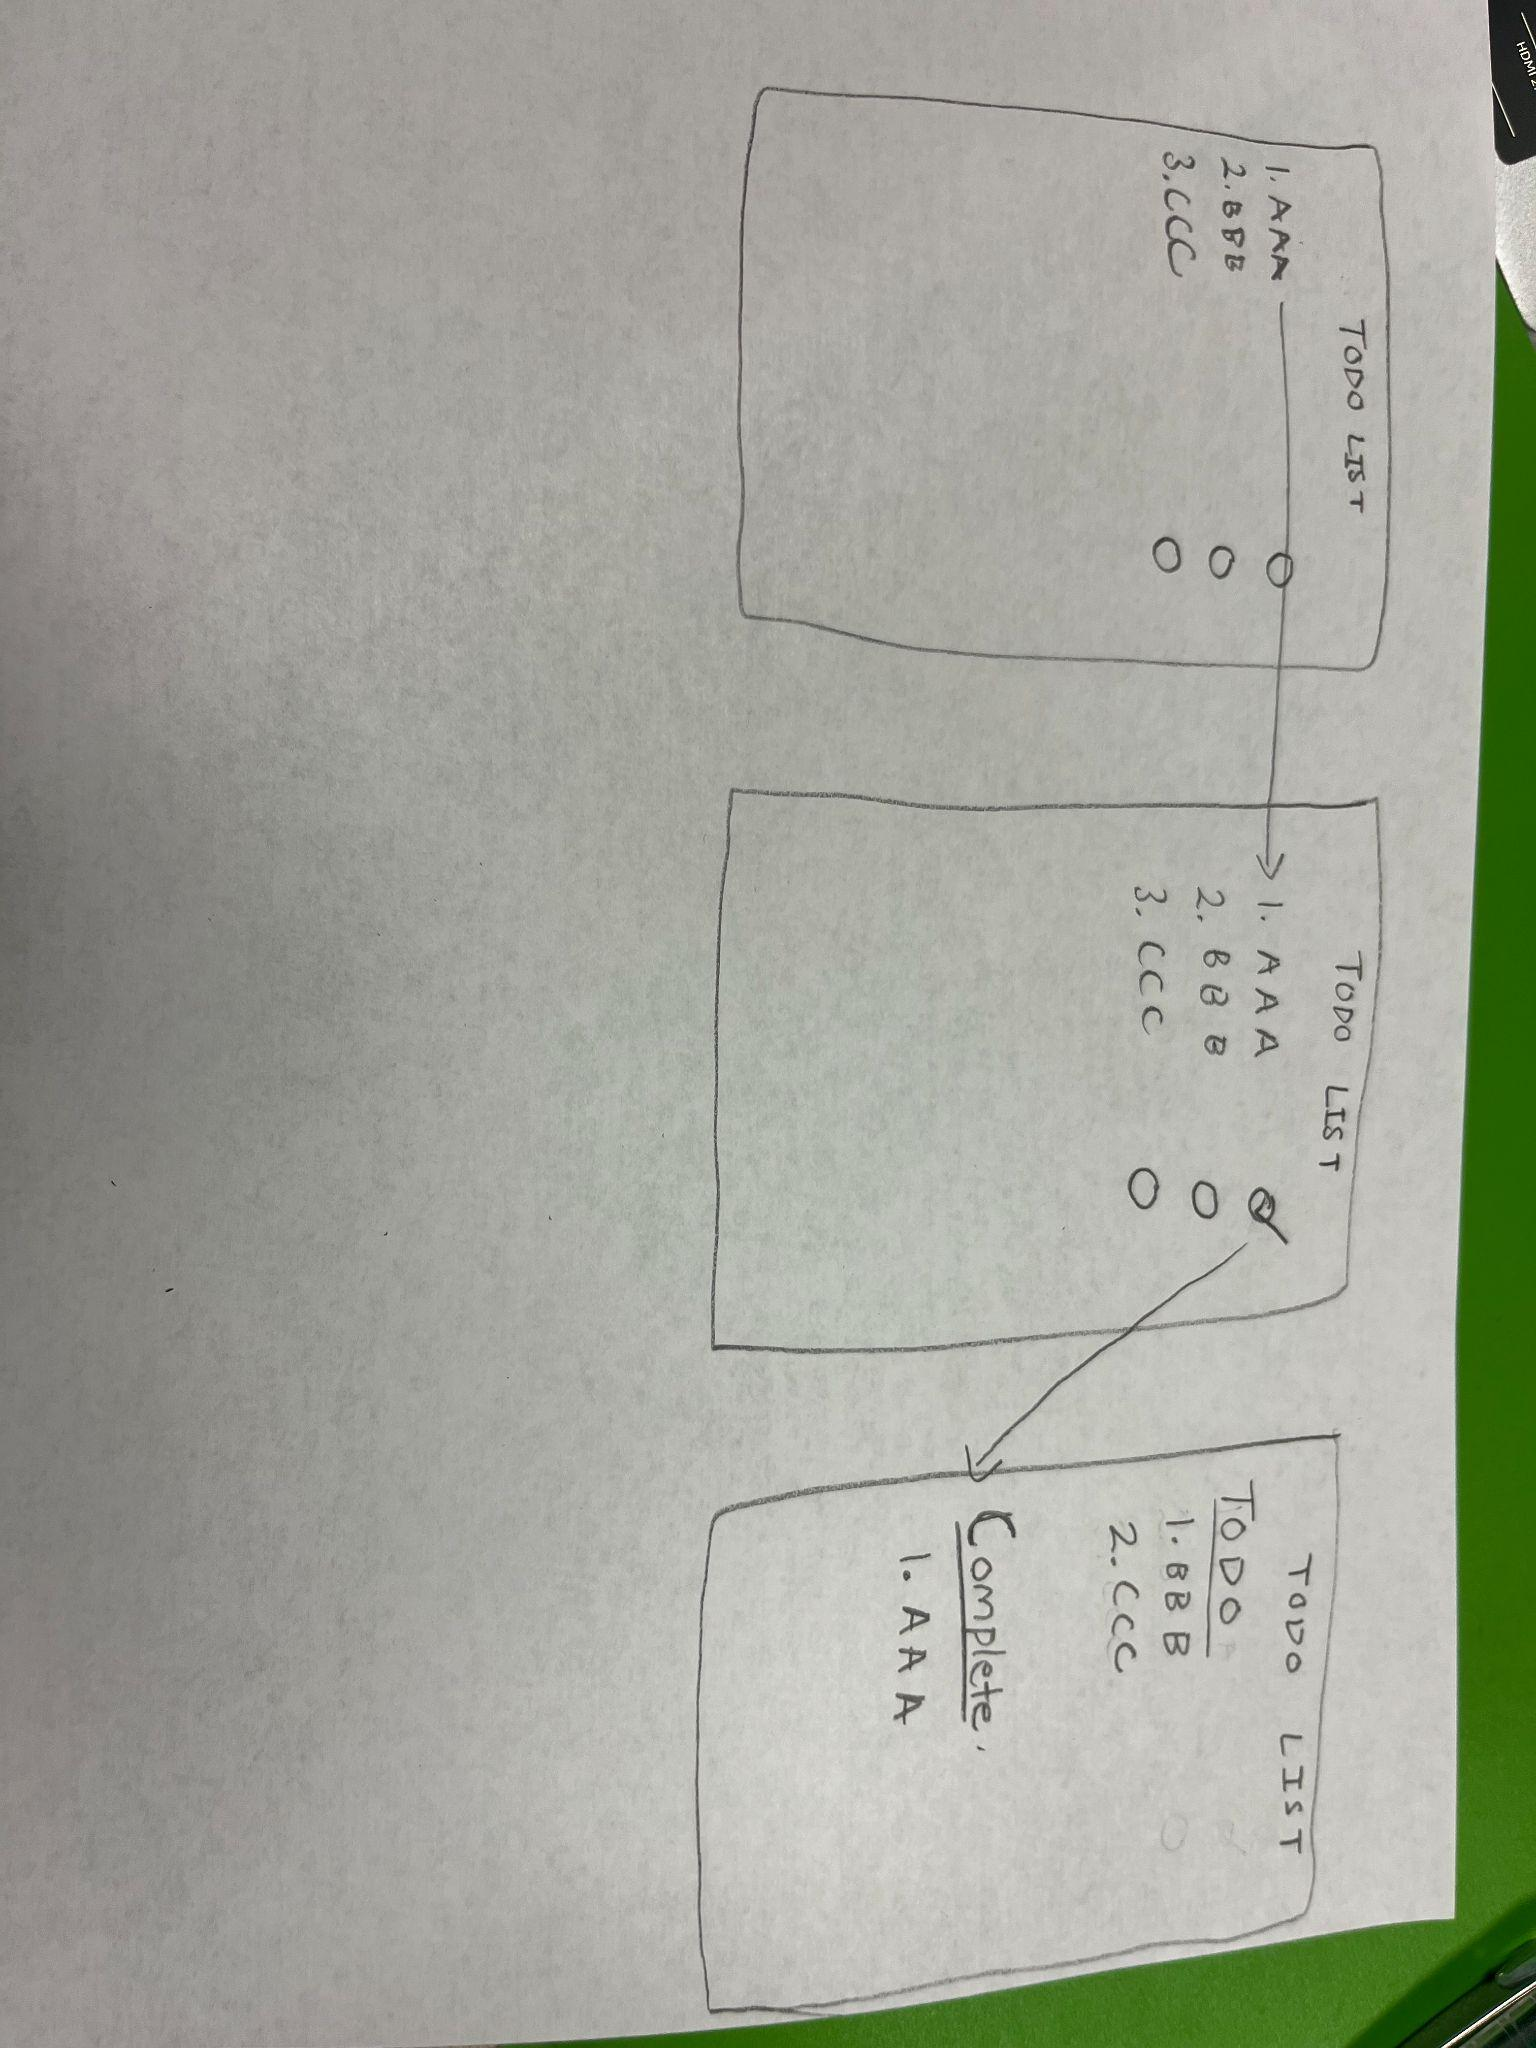 TODO LIST
1. AAA
2. BBB
3. CCC
TODO LIST
1. AAA
2. BBB
3. CCC
TODO LIST
TODO
1. BBB
2. CCC
Complete.
1. AAA
HDMI